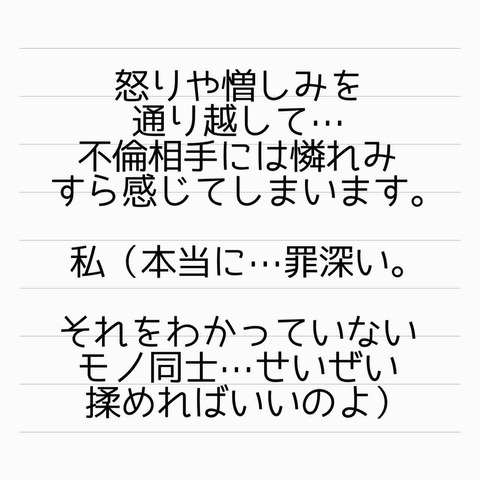 怒りや憎しみを
通り越して…
不倫相手には憐れみ
すら感じてしまいます。
私（本当に…罪深い。
それをわかっていない
モノ同士…せいぜい
揉めればいいのよ）